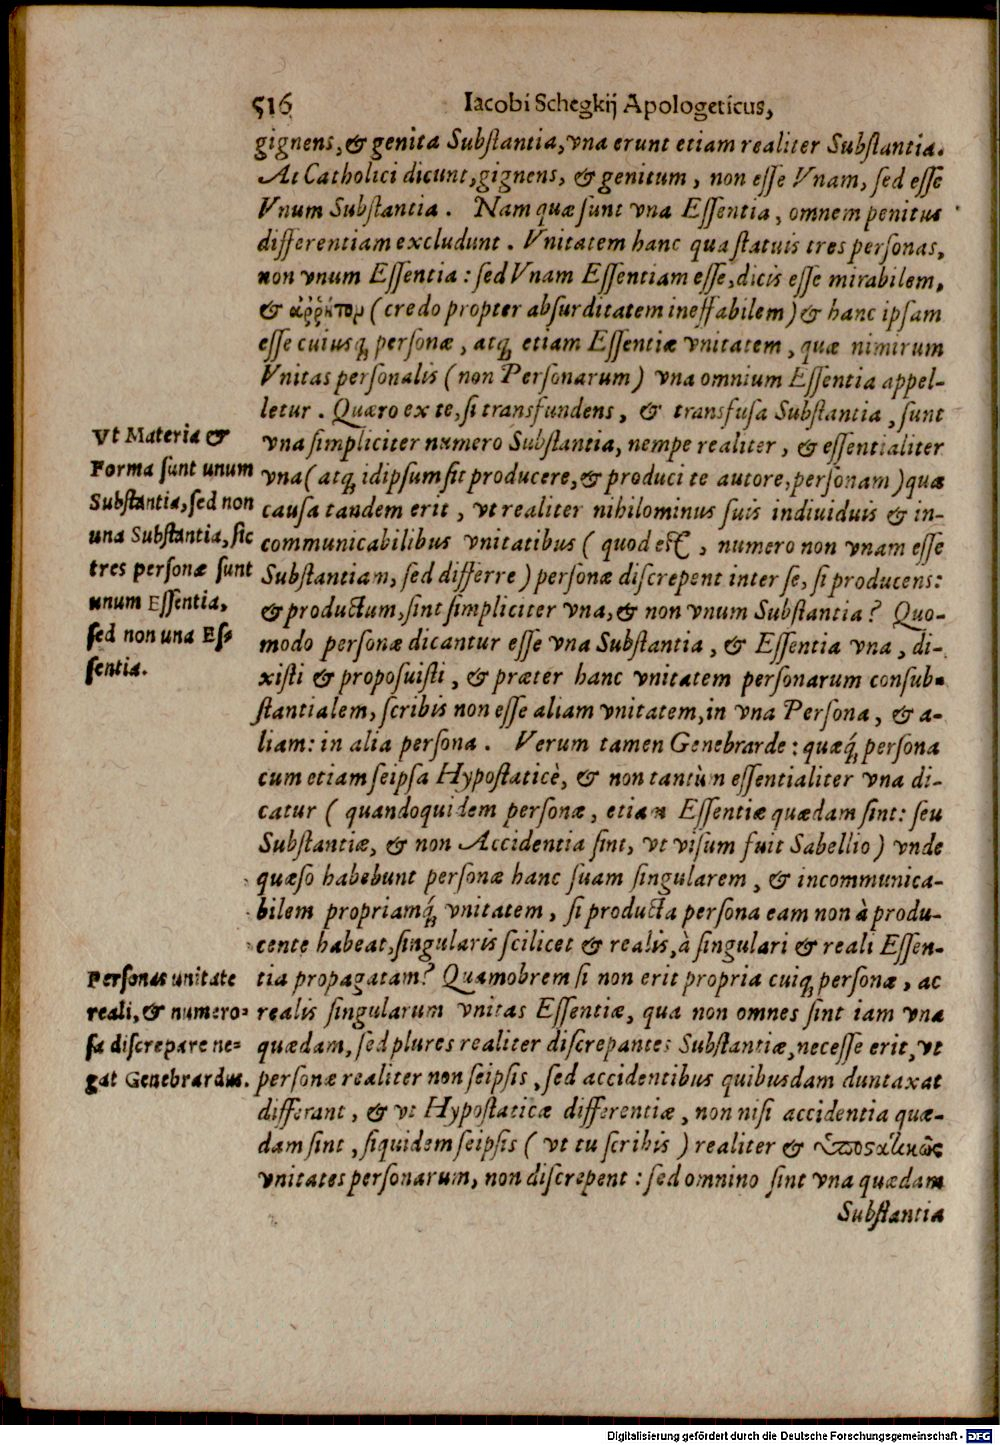 516 Iacobi Schegkij Apologeticus,
gignens, & genita Substantia, vna erunt etiam realiter Substantia.
At Catholici dicunt, gignens, & genitum, non esse Vnam, sed esse
Vnum Substantia. Nam quæ sunt vna Essentia, omnem penitus
differentiam excludunt. Vnitatem hanc qua statuis tres personas,
non vnum Essentia: sed Vnam Essentiam esse, dicis esse mirabilem,
& ἄῤῥητον (credo propter absurditatem ineffabilem) & hanc ipsam
esse cuiusq; personæ, atq; etiam Essentiæ vnitatem, quæ nimirum
Vnitas personalis (non Personarum) vna omnium Essentia appel-
letur. Quæro ex te, si transfundens, & transfusa Substantia, sunt
vna simpliciter numero Substantia, nempe realiter, & essentialiter
vna (atq; idipsum sit producere, & produci te autore, personam) quæ
causa tandem erit, vt realiter nihilominus suis indiuiduis & in-
communicabilibus vnitatibus (quod est, numero non vnam esse
Substantiam, sed differre) personæ discrepent inter se, si producens:
& productum, sint simpliciter vna, & non vnum Substantia? Quo-
modo personæ dicantur esse vna Substantia, & Essentia vna, di-
xisti & proposuisti, & præter hanc vnitatem personarum consub-
stantialem, scribis non esse aliam vnitatem, in vna Persona, & a-
liam: in alia persona. Verum tamen Genebrarde: quæq; persona
cum etiam seipsa Hypostaticè, & non tantùm essentialiter vna di-
catur (quandoquidem personæ, etiam Essentiæ quædam sint: seu
Substantiæ, & non Accidentia sint, vt visum fuit Sabellio) vnde
quæso habebunt personæ hanc suam singularem, & incommunica-
bilem propriamq; vnitatem, si producta persona eam non à produ-
cente habeat, singularis scilicet & realis, à singulari & reali Essen-
tia propagatam? Quamobrem si non erit propria cuiq; personæ, ac
realis singularum vnitas Essentiæ, qua non omnes sint iam vna
quædam, sed plures realiter discrepantes Substantiæ, necesse erit, vt
personæ realiter non seipsis, sed accidentibus quibusdam duntaxat
differant, & vt Hypostaticæ differentiæ, non nisi accidentia quæ-
dam sint, siquidem seipsis (vt tu scribis) realiter & ὑποστατικῶς
vnitates personarum, non discrepent: sed omnino sint vna quædam
Substantia
Vt Materia &
Forma sunt unum
Substantia, sed non
una Substantia, sic
tres personæ sunt
unum Essentia,
sed non una Es-
sentia.
Personas unitate
reali, & numero-
sa discrepare ne-
gat Genebrardus.
Digitalisierung gefördert durch die Deutsche Forschungsgemeinschaft - DFG